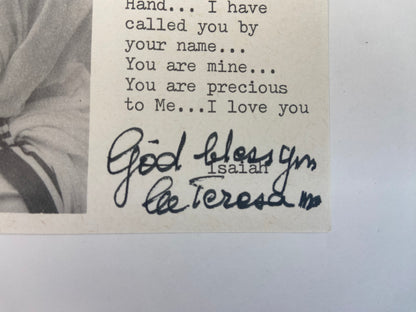 Hand... I have
called you by
your name...
You are mine...
You are precious
to Me...I love you
Isaiah
God bless you
lee Teresa mc